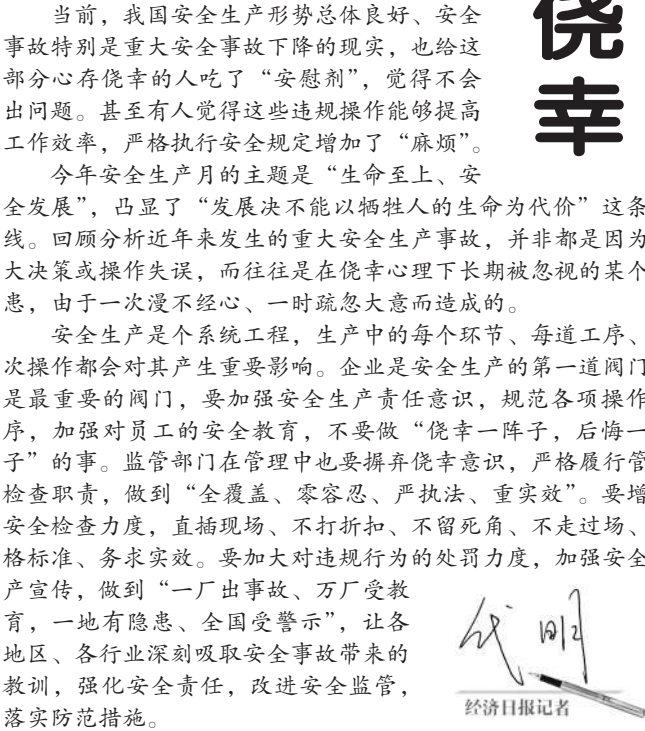 侥
幸
当前，我国安全生产形势总体良好、安全
事故特别是重大安全事故下降的现实，也给这
部分心存侥幸的人吃了“安慰剂”，觉得不会
出问题。甚至有人觉得这些违规操作能够提高
工作效率，严格执行安全规定增加了“麻烦”。
今年安全生产月的主题是“生命至上、安
全发展”，凸显了“发展决不能以牺牲人的生命为代价”这条
线。回顾分析近年来发生的重大安全生产事故，并非都是因为
大决策或操作失误，而往往是在侥幸心理下长期被忽视的某个
患，由于一次漫不经心、一时疏忽大意而造成的。
安全生产是个系统工程，生产中的每个环节、每道工序、
次操作都会对其产生重要影响。企业是安全生产的第一道阀门
是最重要的阀门，要加强安全生产责任意识，规范各项操作
序，加强对员工的安全教育，不要做“侥幸一阵子，后悔一
子”的事。监管部门在管理中也要摒弃侥幸意识，严格履行管
检查职责，做到“全覆盖、零容忍、严执法、重实效”。要增
安全检查力度，直插现场、不打折扣、不留死角、不走过场、
格标准、务求实效。要加大对违规行为的处罚力度，加强安全
产宣传，做到“一厂出事故、万厂受教
育，一地有隐患、全国受警示”，让各
地区、各行业深刻吸取安全事故带来的
教训，强化安全责任，改进安全监管，
落实防范措施。
代明
经济日报记者